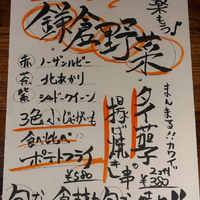 楽もっ♪
鎌倉野菜
赤 ノーザンルビー
茶 北あかり
紫 シャドークイーン
3色小じゃがいも
食べ比べ
ポテトフライ
¥580
まんまる!!カワイイ
タイ茄子の
揚げ焼き串
2コ付
¥380